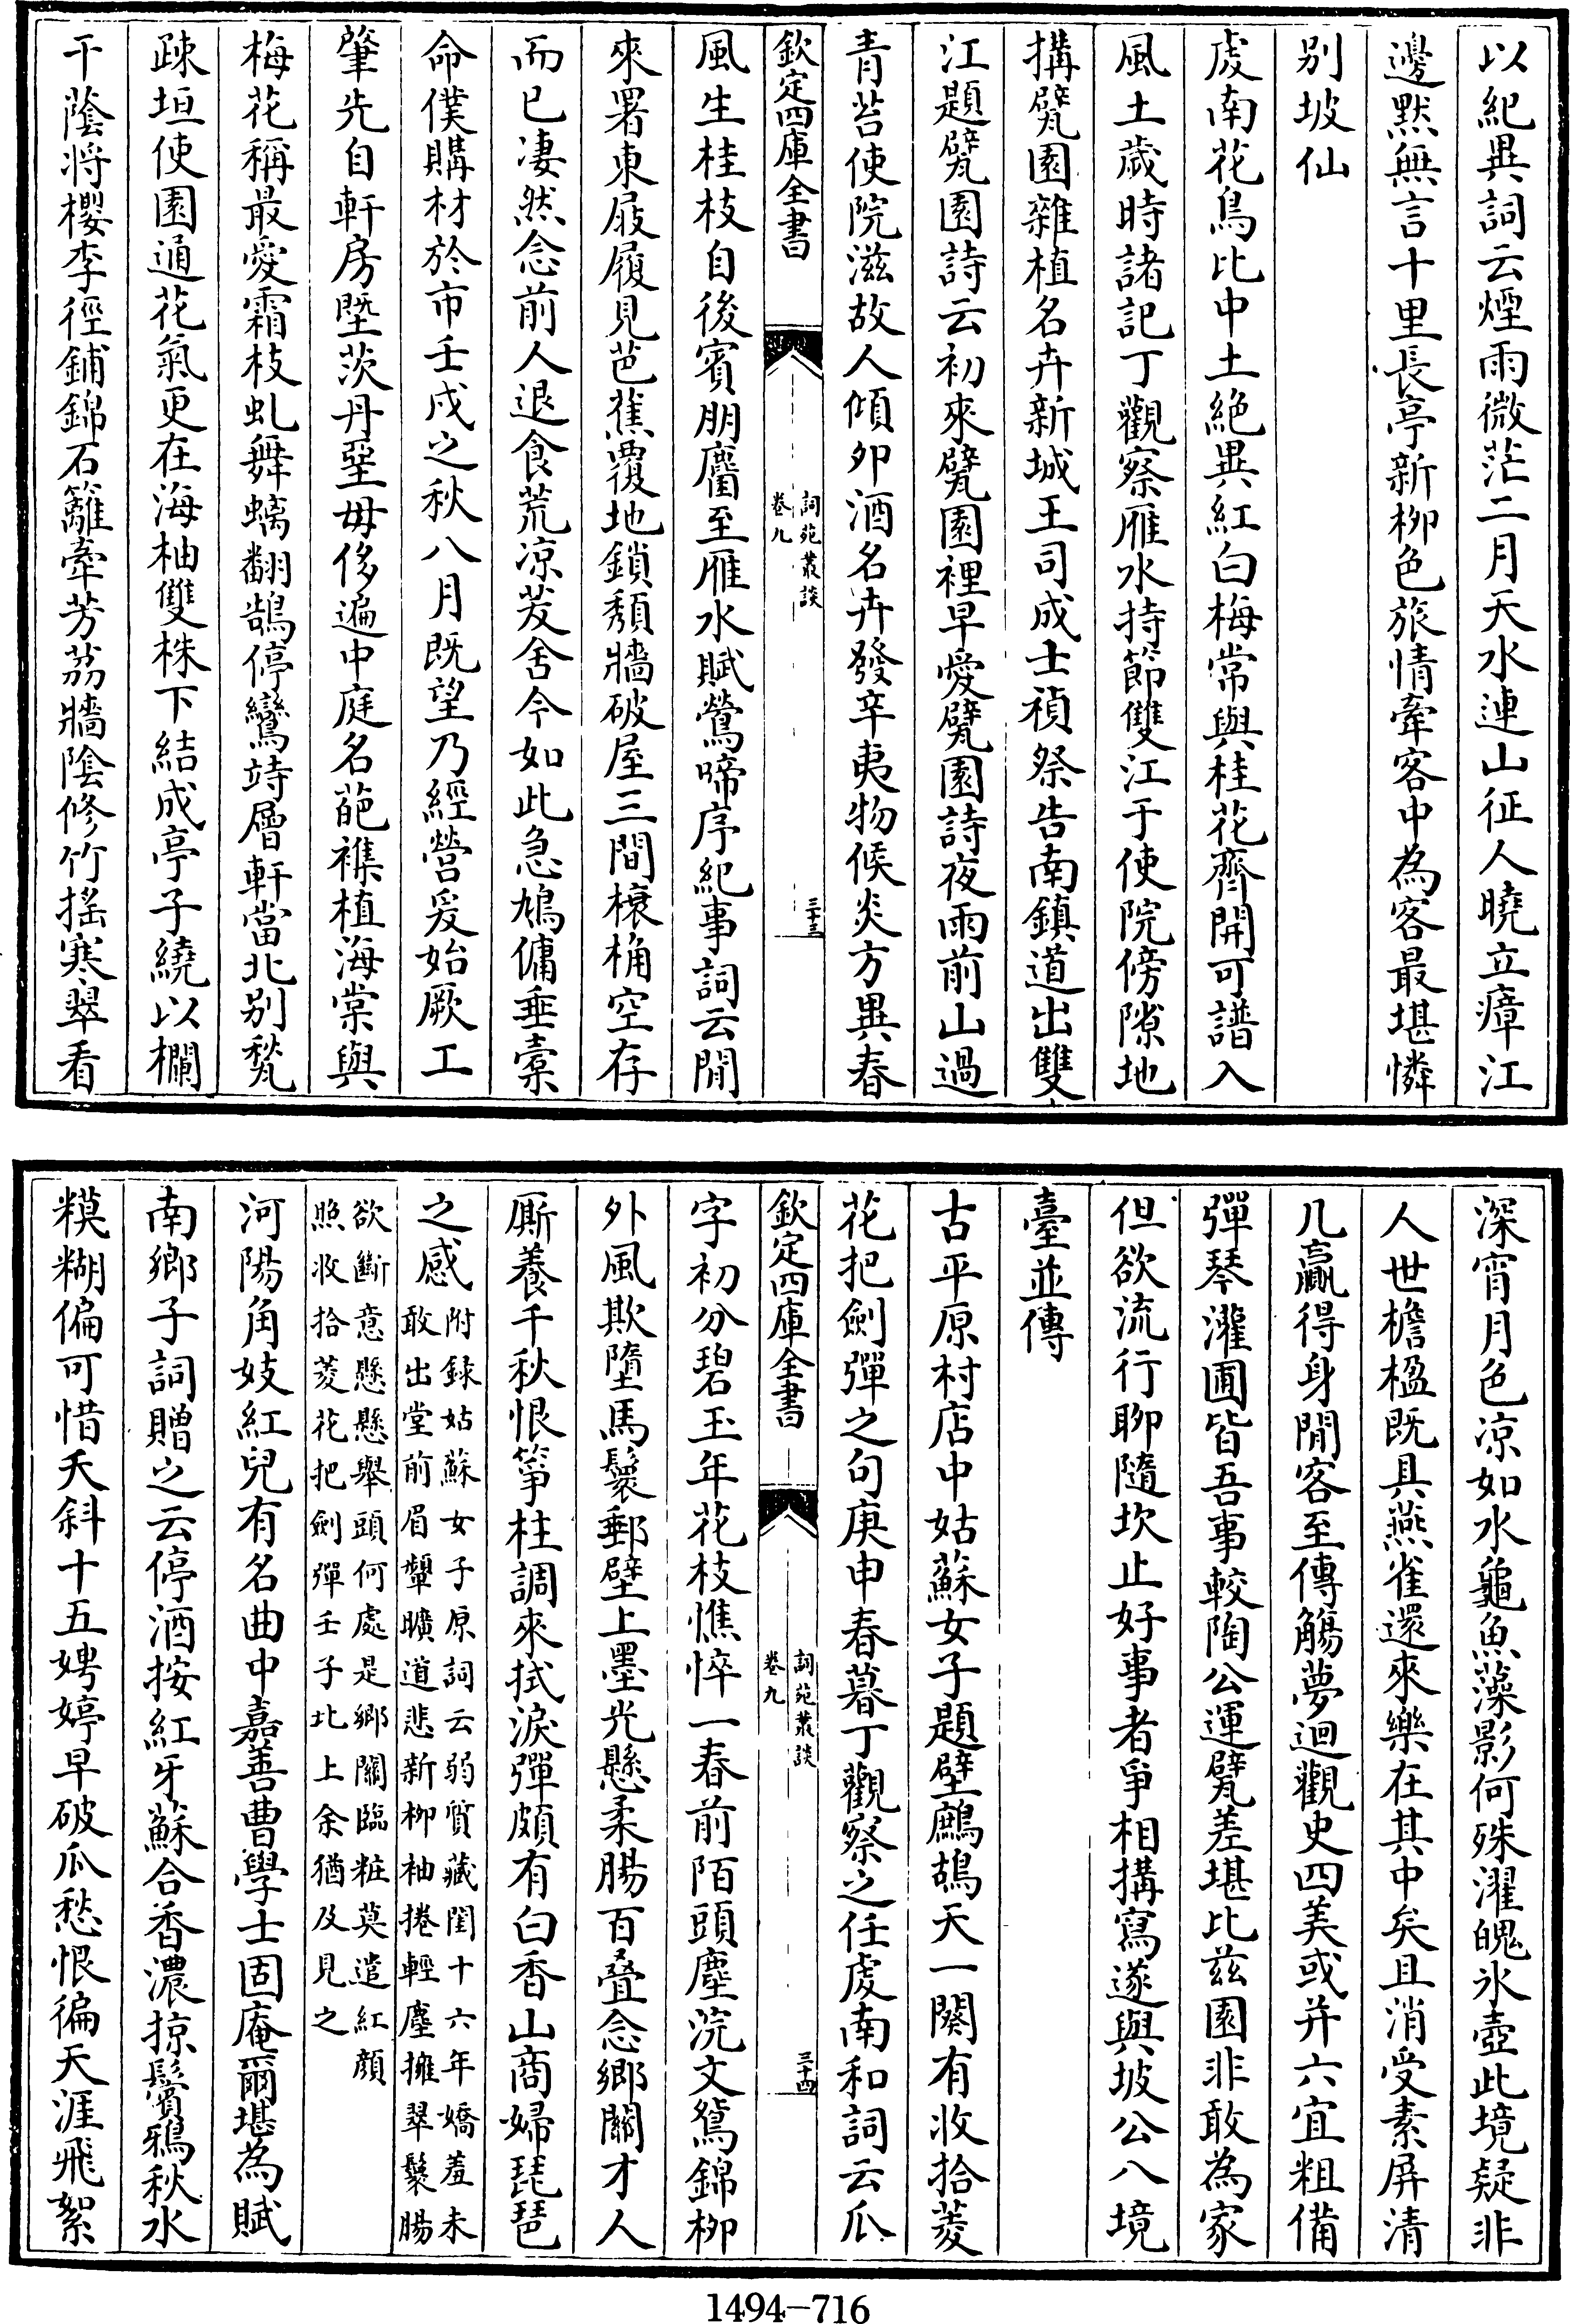 以紀異詞云煙雨微茫二月天水連山征人曉立瘴江
邊默無言十里長亭新柳色旅情牽客中為客最堪憐
别坡仙
虔南花鳥比中土絶異紅白梅常與桂花齊開可譜入
風土歳時諸記丁觀察雁水持節雙江于使院傍隙地
搆甓園雜植名卉新城王司成士禎祭告南鎮道出雙
江題甓園詩云初來甓園裡早愛甓園詩夜雨前山過
青苔使院滋故人傾卯酒名卉發辛夷物候炎方異春
欽定四庫全書
詞苑叢談
卷九
三十三
風生桂枝自後賓朋麕至雁水賦鶯啼序紀事詞云閒
來署東屐履見芭蕉覆地鎖頽牆破屋三間榱桷空存
而已凄然念前人退食荒凉茇舍今如此急鳩傭埀橐
命僕購材於市壬戍之秋八月既望乃經營爰始厥工
肇先自軒房塈茨丹堊毋侈遍中庭名葩襍植海棠與
梅花稱最愛霜枝虬舞螭翻鵠停鸞峙層軒當北别甃
疎垣使園通花氣更在海柚雙株下結成亭子繞以欄
干蔭将櫻李徑鋪錦石籬牽芳荔牆陰修竹摇寒翠看
深宵月色凉如水龜魚藻影何殊濯魄氷壺此境疑非
人世檐楹既具燕雀還來樂在其中矣且消受素屏清
几贏得身閒客至傳觴夢迴觀史四美或并六宜粗備
彈琴灌圃皆吾事較陶公運甓差堪比兹園非敢為家
但欲流行聊隨坎止好事者爭相搆寫遂與坡公八境
臺並傳
古平原村店中姑蘇女子題壁鷓鴣天一闋有收拾菱
花把劍彈之句庚申春暮丁觀察之任虔南和詞云瓜
欽定四庫全書
詞苑叢談
卷九
三十四
字初分碧玉年花枝憔悴一春前陌頭塵浣文鴛錦柳
外風欺墮馬鬟郵壁上墨光懸柔腸百疊念鄉關才人
厮養千秋恨箏柱調來拭淚彈頗有白香山商婦琵琶
之感附録姑蘇女子原詞云弱質藏閨十六年嬌羞未
敢出堂前眉顰曠道悲新柳袖捲輕塵擁翠鬟腸
欲斷意懸懸舉頭何處是鄉關臨粧莫遣紅顔
照收拾菱花把劍彈壬子北上余猶及見之
河陽角妓紅兒有名曲中嘉善曹學士固庵爾堪為賦
南鄉子詞贈之云停酒按紅牙蘇合香濃掠鬢鴉秋水
糢糊偏可惜夭斜十五娉婷早破瓜愁恨徧天涯飛絮
1494-716